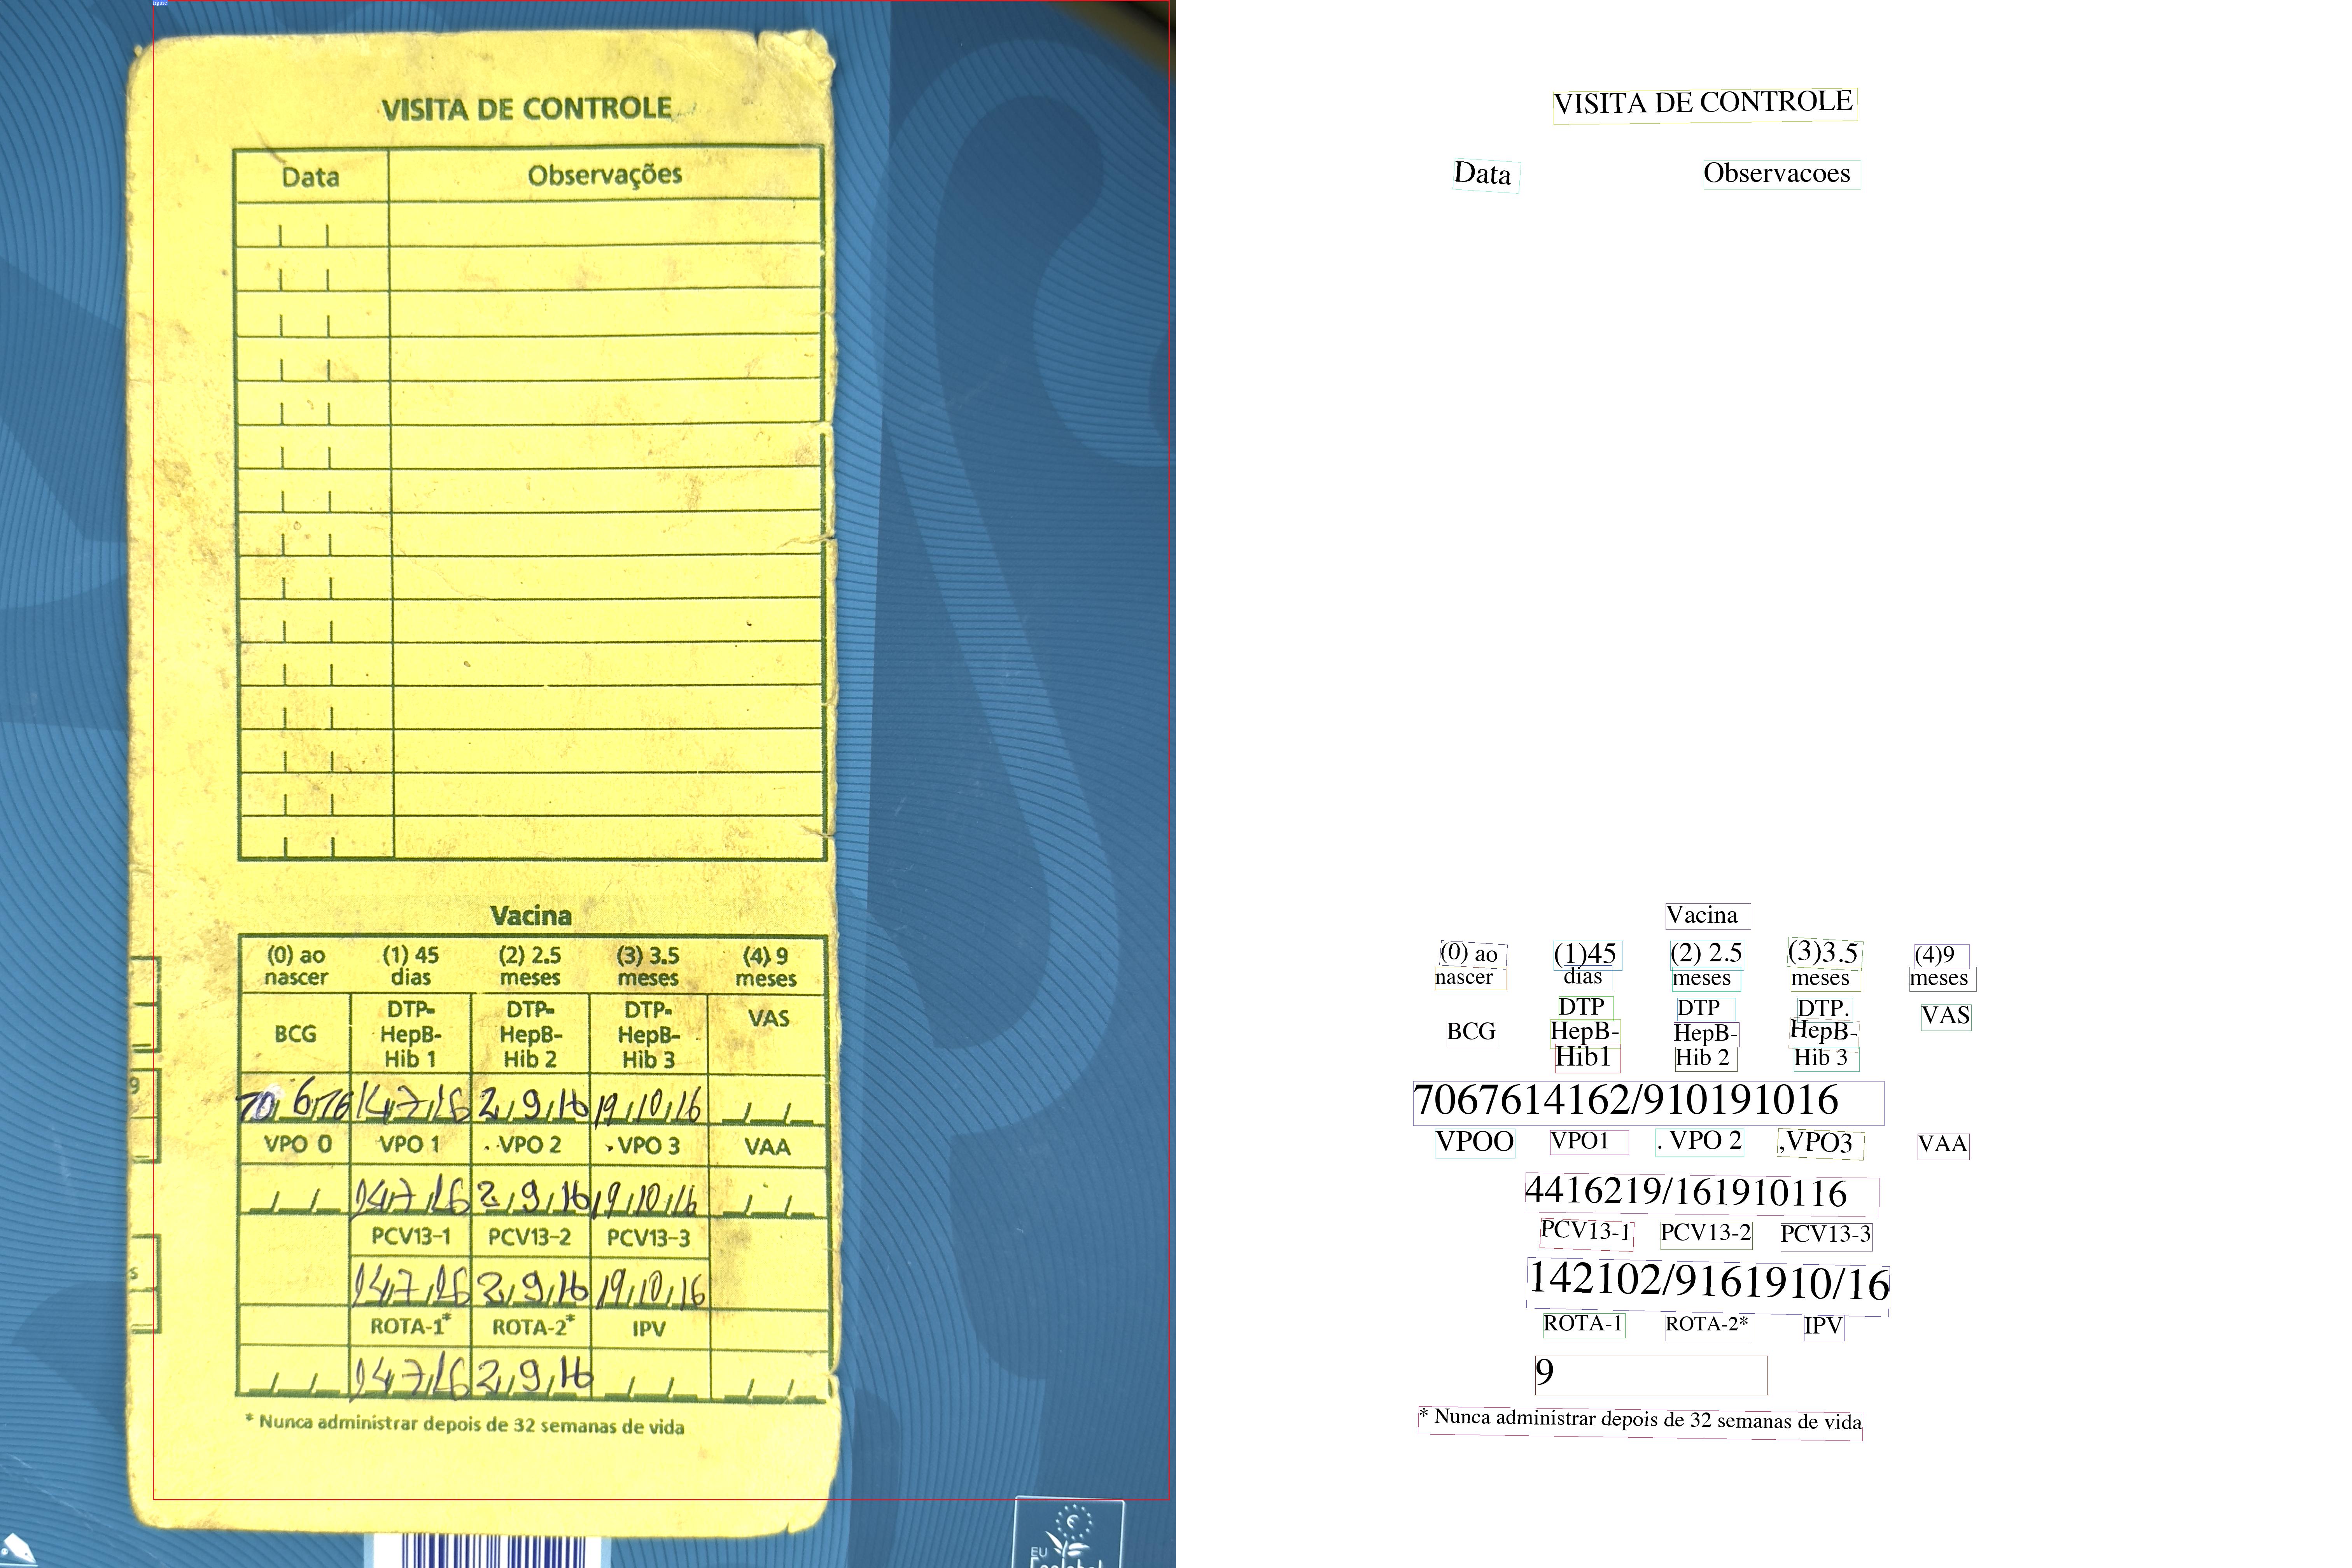 figure
VISITA DE CONTROLE
Data Observações
Vacina
(0) ao nascer (1) 45 dias (2) 2.5 meses (3) 3.5 meses (4) 9 meses
BCG DTP-HepB-Hib 1 DTP-HepB-Hib 2 DTP-HepB-Hib 3 VAS
14/7/16 2/9/16 19/10/16
VPO 0 VPO 1 VPO 2 VPO 3 VAA
14/7/16 2/9/16 19/10/16
PCV13-1 PCV13-2 PCV13-3
14/7/16 2/9/16 19/10/16
ROTA-1* ROTA-2* IPV
14/7/16 2/9/16
* Nunca administrar depois de 32 semanas de vida
EU
VISITA DE CONTROLE
Data Observacoes
Vacina
(0) ao (1)45 (2) 2.5 (3)3.5 (4)9
nascer dias meses meses meses
DTP DTP DTP. VAS
BCG HepB- HepB- HepB-
Hib1 Hib 2 Hib 3
7067614162/910191016
VPOO VPO1 . VPO 2 ,VPO3 VAA
4416219/161910116
PCV13-1 PCV13-2 PCV13-3
142102/9161910/16
ROTA-1 ROTA-2* IPV
9
* Nunca administrar depois de 32 semanas de vida